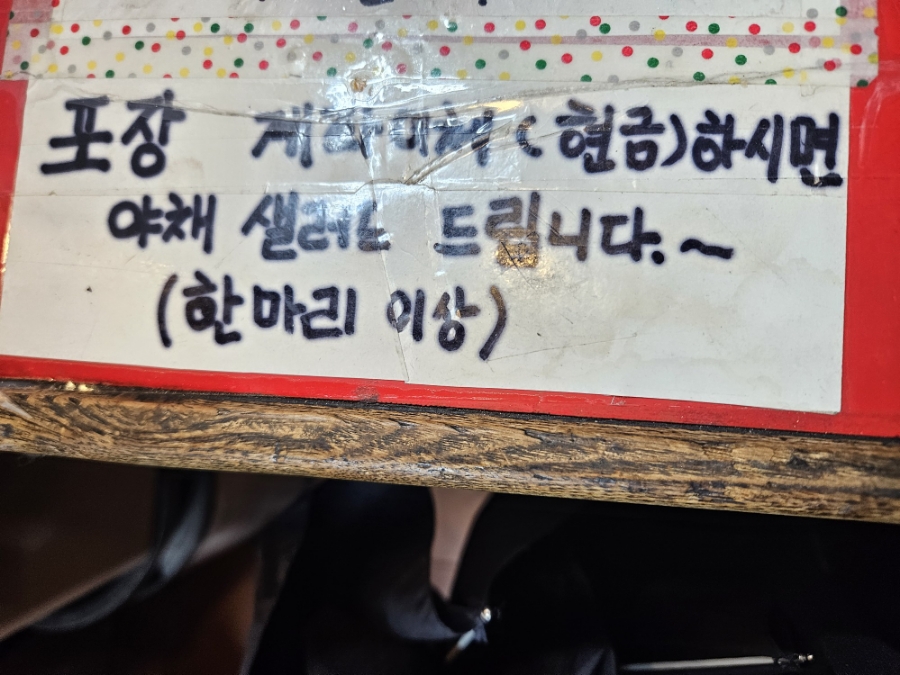 포장 계좌이체 (현금)하시면
야채 샐러드 드립니다.~
(한마리 이상)